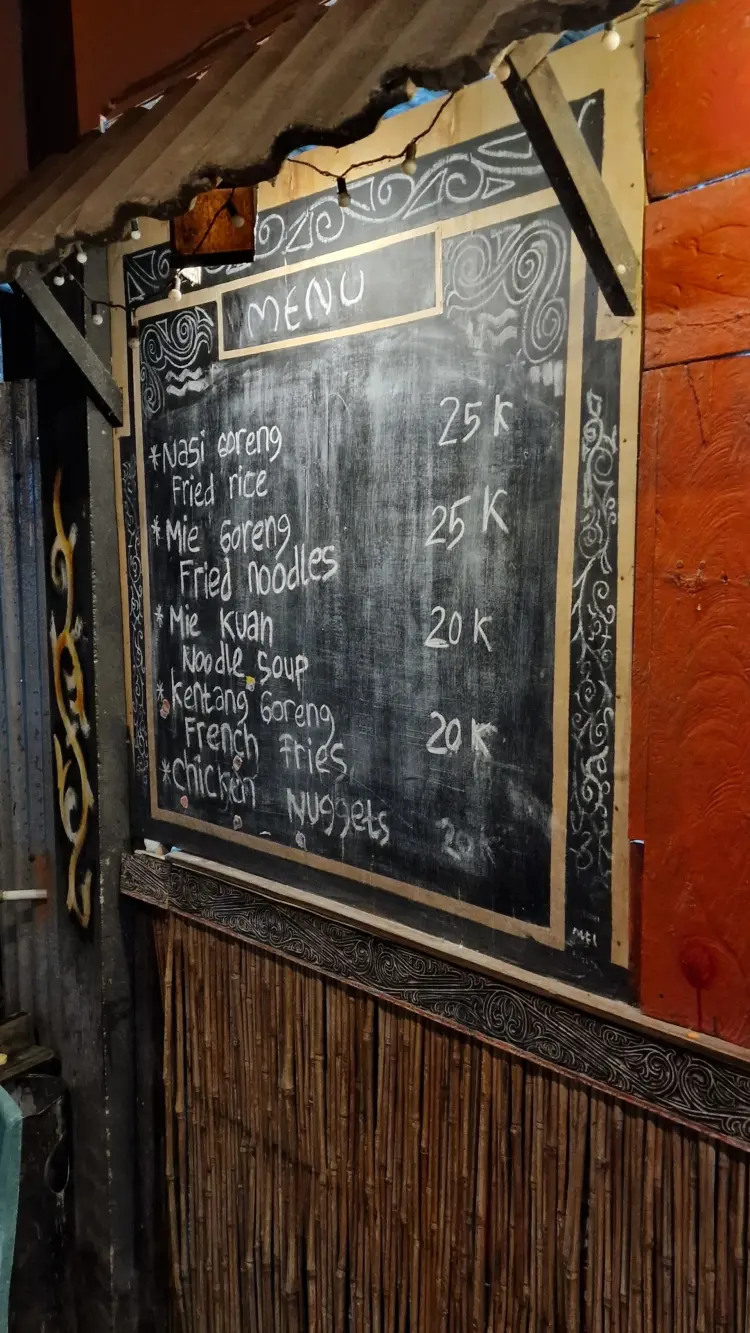 MENU
*Nasi Goreng 25K
Fried rice
*Mie Goreng 25K
Fried noodles
*Mie Kuah 20K
Noodle Soup
*Kentang Goreng 20K
French Fries
*Chicken Nuggets 20K